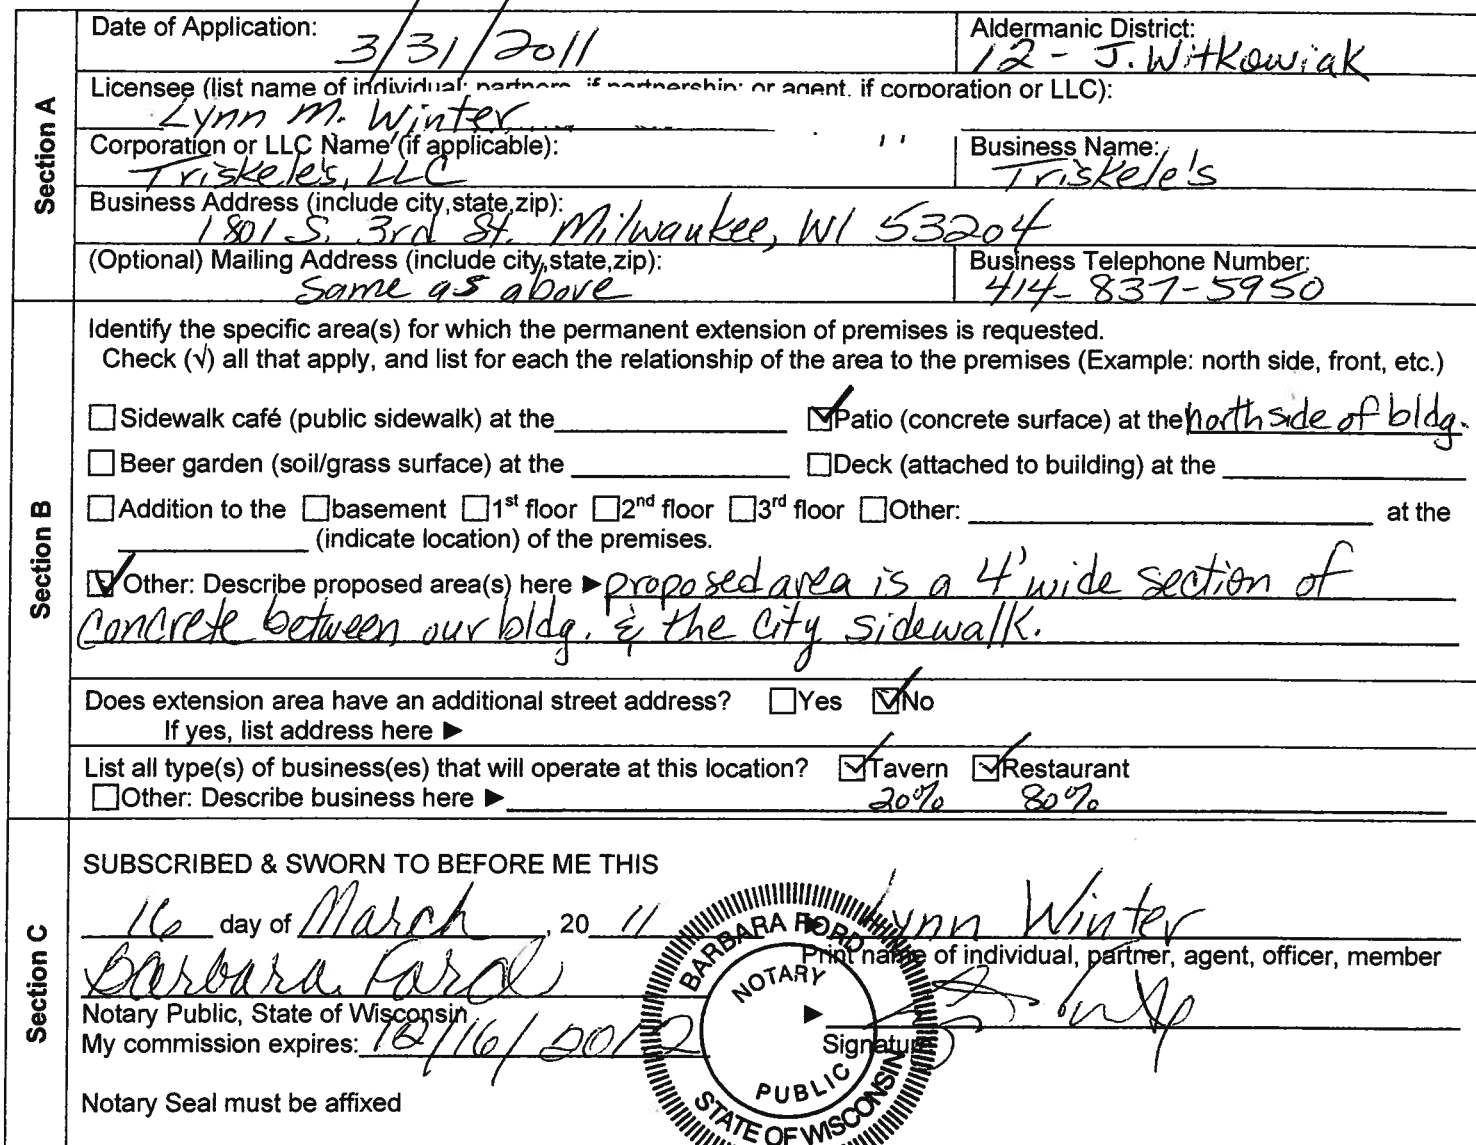 Date of Application: 3/31/2011 Aldermanic District: 12 - J. Witkowiak
Licensee (list name of individual; partners, if partnership; or agent, if corporation or LLC):
Lynn M. Winter
Corporation or LLC Name (if applicable): Business Name:
Triskele's, LLC Triskele's
Business Address (include city,state,zip):
1801 S. 3rd St. Milwaukee, WI 53204
(Optional) Mailing Address (include city,state,zip): Business Telephone Number:
Same as above 414-837-5950
Section A
Identify the specific area(s) for which the permanent extension of premises is requested.
Check (√) all that apply, and list for each the relationship of the area to the premises (Example: north side, front, etc.)
Sidewalk café (public sidewalk) at the Patio (concrete surface) at the north side of bldg.
Beer garden (soil/grass surface) at the Deck (attached to building) at the
Addition to the basement 1st floor 2nd floor 3rd floor Other: at the
(indicate location) of the premises.
Other: Describe proposed area(s) here ► proposed area is a 4' wide section of
concrete between our bldg. & the city sidewalk.
Does extension area have an additional street address? Yes No
If yes, list address here ►
List all type(s) of business(es) that will operate at this location? Tavern Restaurant
Other: Describe business here ► 20% 80%
Section B
SUBSCRIBED & SWORN TO BEFORE ME THIS
16 day of March, 2011 Lynn Winter
Print name of individual, partner, agent, officer, member
Barbara Ford
Notary Public, State of Wisconsin
My commission expires: 12/16/2012 ► Signature
Notary Seal must be affixed
BARBARA FORD
NOTARY
PUBLIC
STATE OF WISCONSIN
Section C